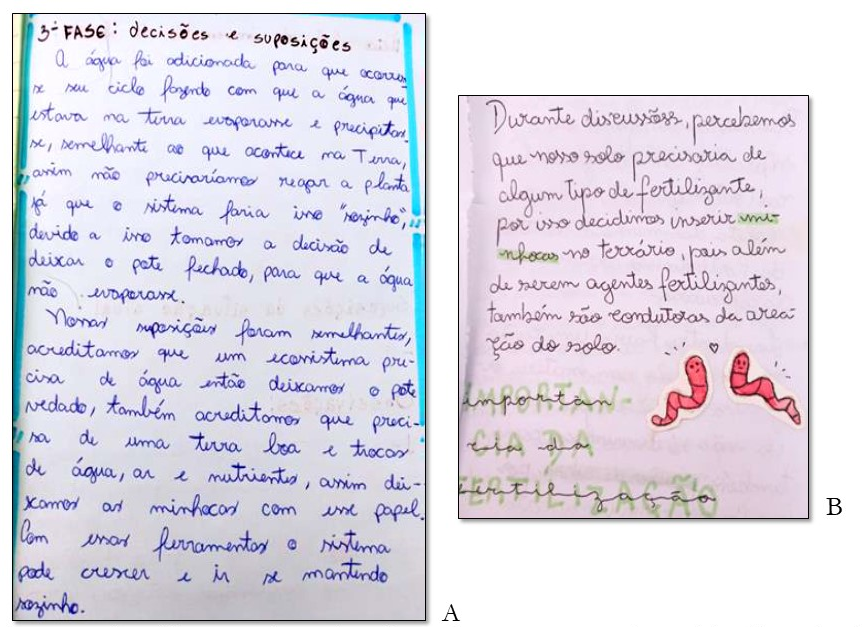 3ª FASE: decisões e suposições
A água foi adicionada para que ocorres
se seu ciclo fazendo com que a água que
estava na terra evaporasse e precipitas
se, semelhante ao que acontece na Terra,
assim não precisaríamos regar a planta
já que o sistema faria isso "sozinho",
devido a isso tomamos a decisão de
deixar o pote fechado, para que a água
não evaporasse.
Nossas suposições foram semelhantes,
acreditamos que um ecossistema pre-
cisa de água então deixamos o pote
vedado, também acreditamos que preci-
sa de uma terra boa e trocas
de água, ar e nutrientes, assim dei-
xamos as minhocas com esse papel.
Com essas ferramentas o sistema
pode crescer e ir se mantendo
sozinho.
A
Durante discussões, percebemos
que nosso solo precisaria de
algum tipo de fertilizante,
por isso decidimos inserir mi-
nhocas no terrário, pois além
de serem agentes fertilizantes,
também são condutoras da area-
ção do solo.
IMPORTAN-
CIA DA
FERTILIZAÇÃO
importân
cia da
fertilização
B